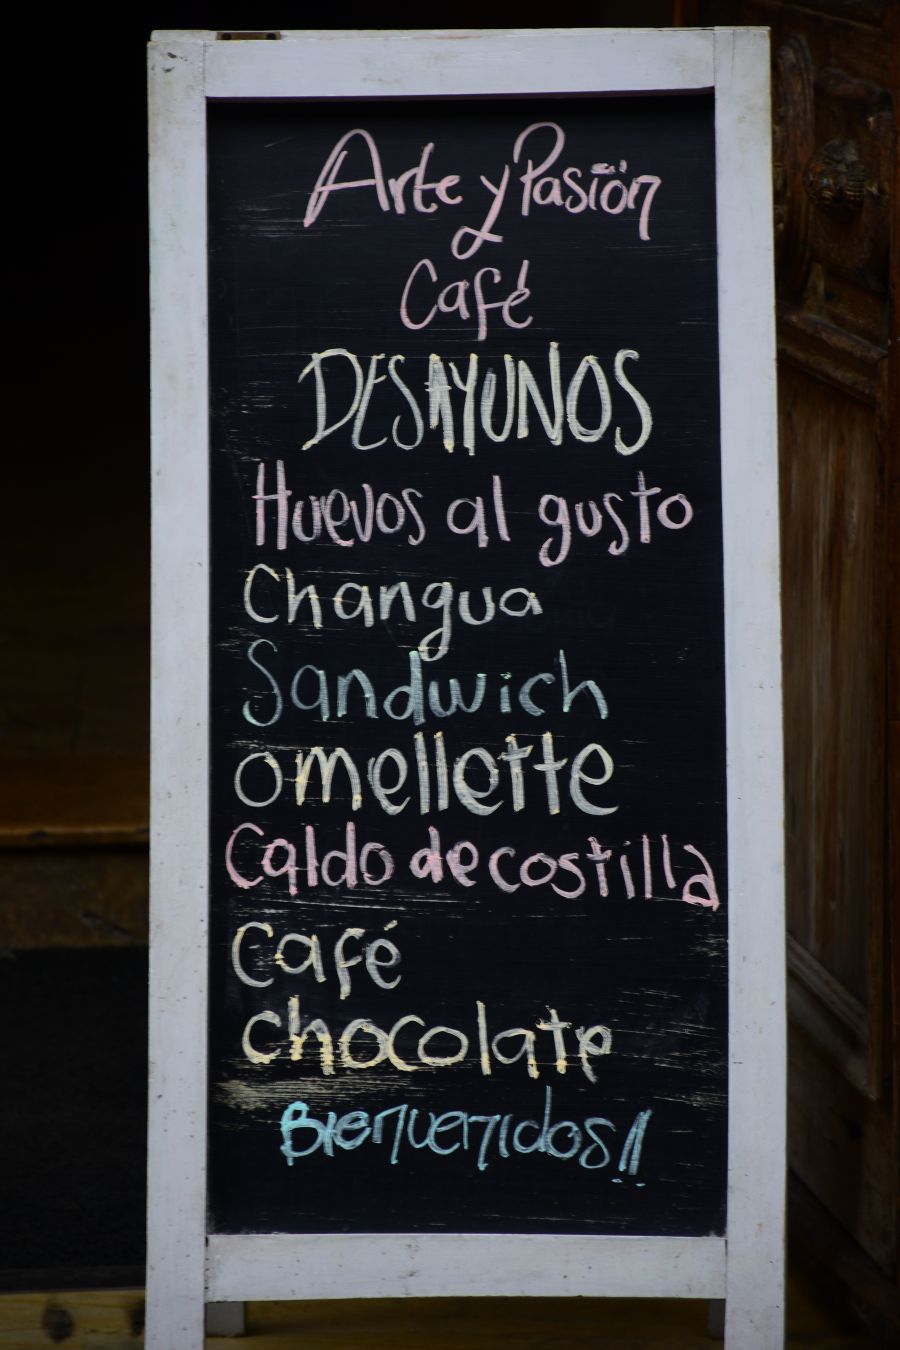 Arte y Pasión
Café
DESAYUNOS
Huevos al gusto
Changua
Sandwich
omellette
Caldo de costilla
Café
chocolate
Bienvenidos!!